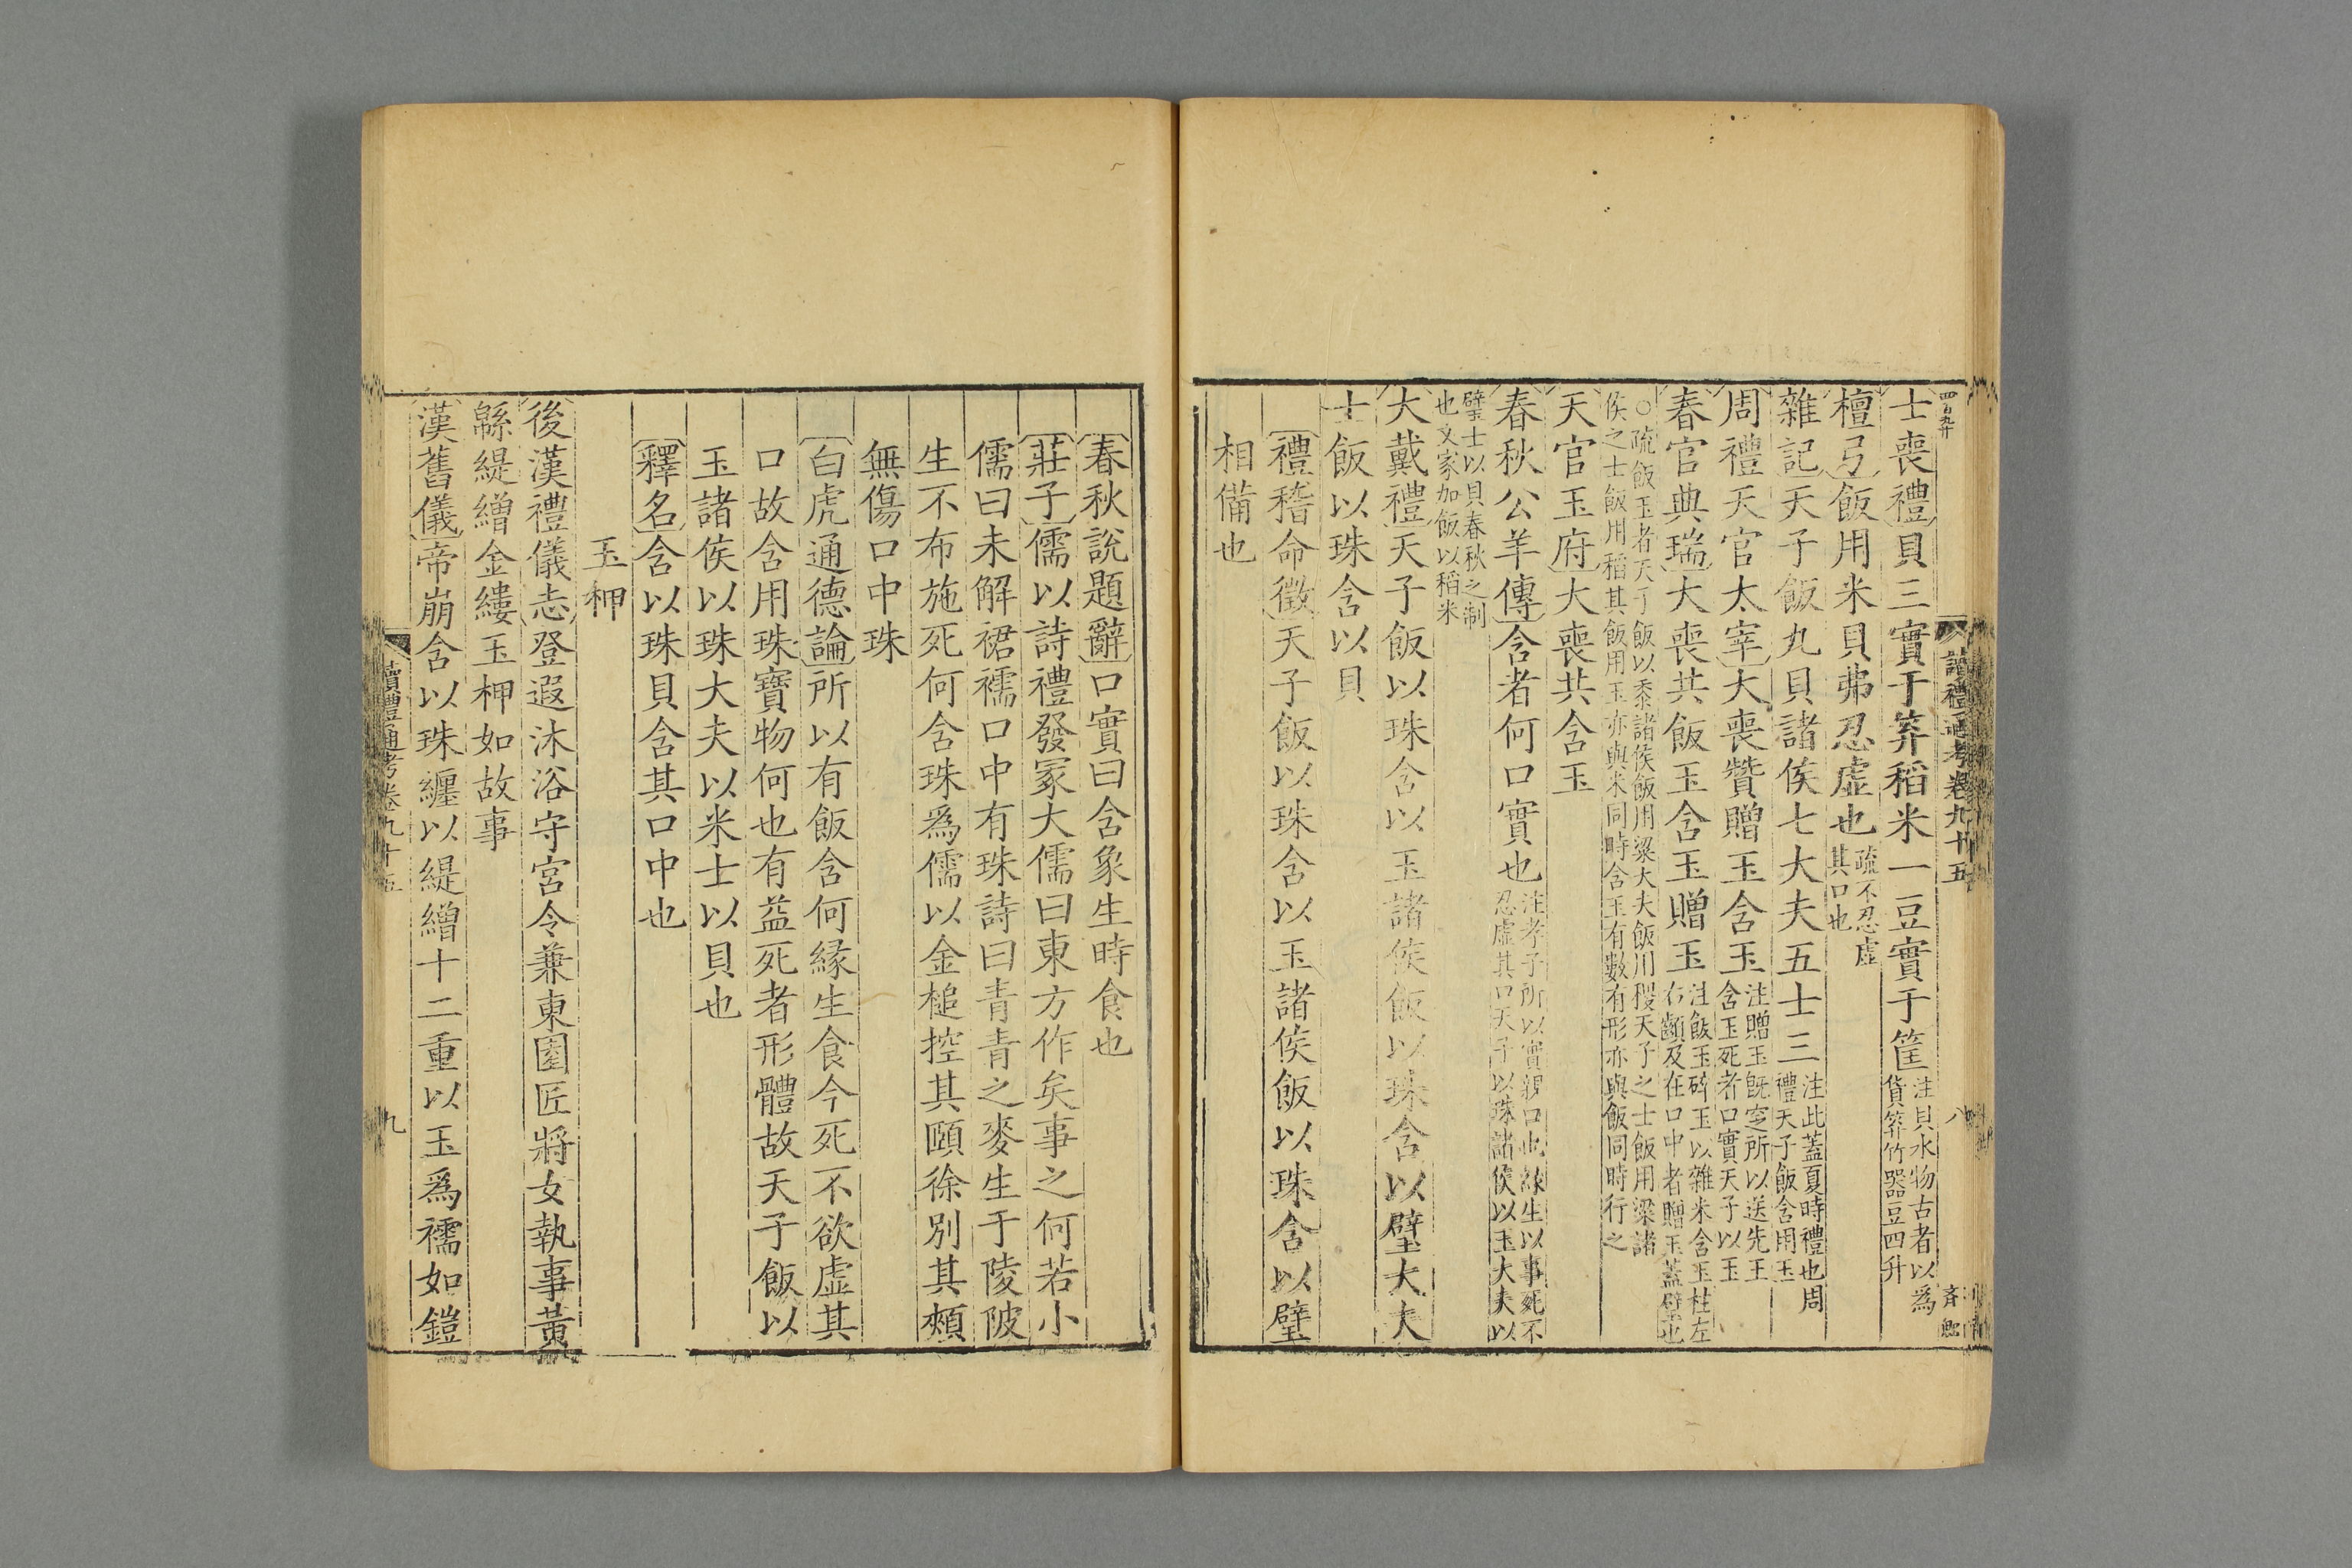 讀禮通考卷九十五 八
士喪禮貝三實于笲稻米一豆實于筐注貝水物古者以為貨笲竹器豆四升
檀弓飯用米貝弗忍虛也疏不忍虛其口也
雜記天子飯九貝諸侯七大夫五士三注此蓋夏時禮也周禮天子飯含用玉
周禮天官太宰大喪贊贈玉含玉注贈玉既窆所以送先王含玉死者口實天子以玉
春官典瑞大喪共飯玉含玉贈玉注飯玉碎玉以雜米含玉柱左右顱及在口中者贈玉蓋璧也
○疏飯玉者天子飯以黍諸侯飯用粱大夫飯用稷天子之士飯用粱諸
侯之士飯用稻其飯用玉亦與米同時含玉有數有形亦與飯同時行之
天官玉府大喪共含玉
春秋公羊傳含者何口實也注孝子所以實親口也緣生以事死不忍虛其口天子以珠諸侯以玉大夫以
璧士以貝春秋之制
也文家加飯以稻米
大戴禮天子飯以珠含以玉諸侯飯以珠含以璧大夫
士飯以珠含以貝
禮稽命徵天子飯以珠含以玉諸侯飯以珠含以璧
相備也
春秋說題辭口實曰含象生時食也
莊子儒以詩禮發冢大儒曰東方作矣事之何若小
儒曰未解裙襦口中有珠詩曰青青之麥生于陵陂
生不布施死何含珠爲儒以金槌控其頤徐別其頰
無傷口中珠
白虎通德論所以有飯含何緣生食今死不欲虛其
口故含用珠寶物何也有益死者形體故天子飯以
玉諸侯以珠大夫以米士以貝也
釋名含以珠貝含其口中也
玉柙
後漢禮儀志登遐沐浴守宮令兼東園匠將女執事黃
緜緹繒金縷玉柙如故事
漢舊儀帝崩含以珠纏以緹繒十二重以玉爲襦如鎧
讀禮通考卷九十五 九